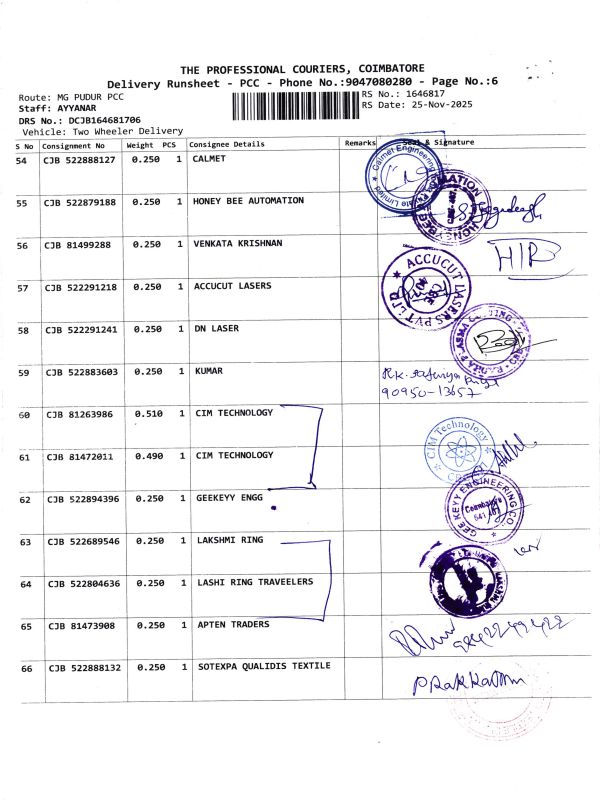 THE PROFESSIONAL COURIERS, COIMBATORE
Delivery Runsheet - PCC - Phone No.:9047080280 - Page No.:6
Route: MG PUDUR PCC
RS No.: 1646817
Staff: AYYANAR
RS Date: 25-Nov-2025
DRS No.: DCJB164681706
Vehicle: Two Wheeler Delivery
S No Consignment No Weight PCS Consignee Details Remarks Seal & Signature
54 CJB 522888127 0.250 1 CALMET
Calmet Engineering Private Limited
55 CJB 522879188 0.250 1 HONEY BEE AUTOMATION
56 CJB 81499288 0.250 1 VENKATA KRISHNAN
57 CJB 522291218 0.250 1 ACCUCUT LASERS
ACCUCUT LASERS PVT LTD
58 CJB 522291241 0.250 1 DN LASER
59 CJB 522883603 0.250 1 KUMAR
90950-13657
60 CJB 81263986 0.510 1 CIM TECHNOLOGY
CIM Technology
61 CJB 81472011 0.490 1 CIM TECHNOLOGY
62 CJB 522894396 0.250 1 GEEKEYY ENGG
GEE KEYY ENGINEERING CO
Coimbatore
63 CJB 522689546 0.250 1 LAKSHMI RING
64 CJB 522804636 0.250 1 LASHI RING TRAVEELERS
65 CJB 81473908 0.250 1 APTEN TRADERS
66 CJB 522888132 0.250 1 SOTEXPA QUALIDIS TEXTILE